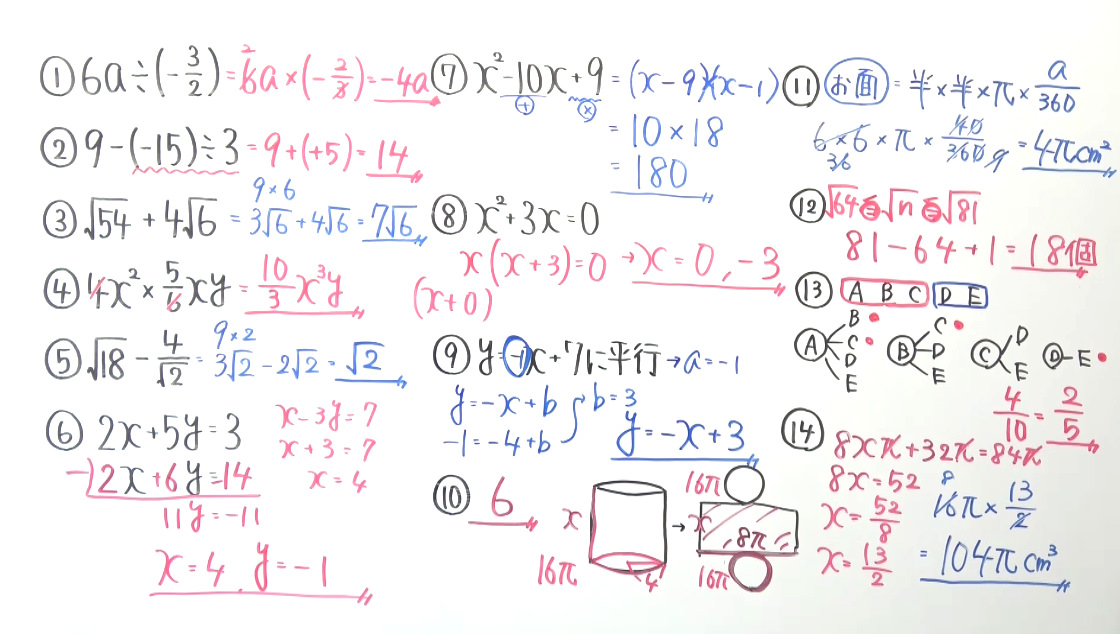 ① 6a÷(-3/2)=6a×(-2/3)=-4a
2
② 9-(-15)÷3=9+(+5)=14
③ √54+4√6=3√6+4√6=7√6
9×6
④ 4x²×5/6xy=10/3x³y
⑤ √18-4/√2=3√2-2√2=√2
9×2
⑥ 2x+5y=3
-)2x+6y=14
11y=-11
x-3y=7
x+3=7
x=4
x=4, y=-1
⑦ x²-10x+9=(x-9)(x-1)
+ ×
=10×18
=180
⑧ x²+3x=0
x(x+3)=0→x=0,-3
(x+0)
⑨ y=-1x+7に平行→a=-1
y=-x+b
-1=-4+b
b=3
y=-x+3
⑩ 6
x
16π
4
→
16π
x
8π
16π
⑪ お面=半×半×π×a/360
6×6×π×40/360=4πcm²
36 9
⑫ √64≦√n≦√81
81-64+1=18個
⑬ A B C D E
A B C D E
B C D E
C D E
D-E
4/10=2/5
⑭ 8xπ+32π=84π
8x=52
x=52/8
x=13/2
8
16π×13/2
=104πcm³